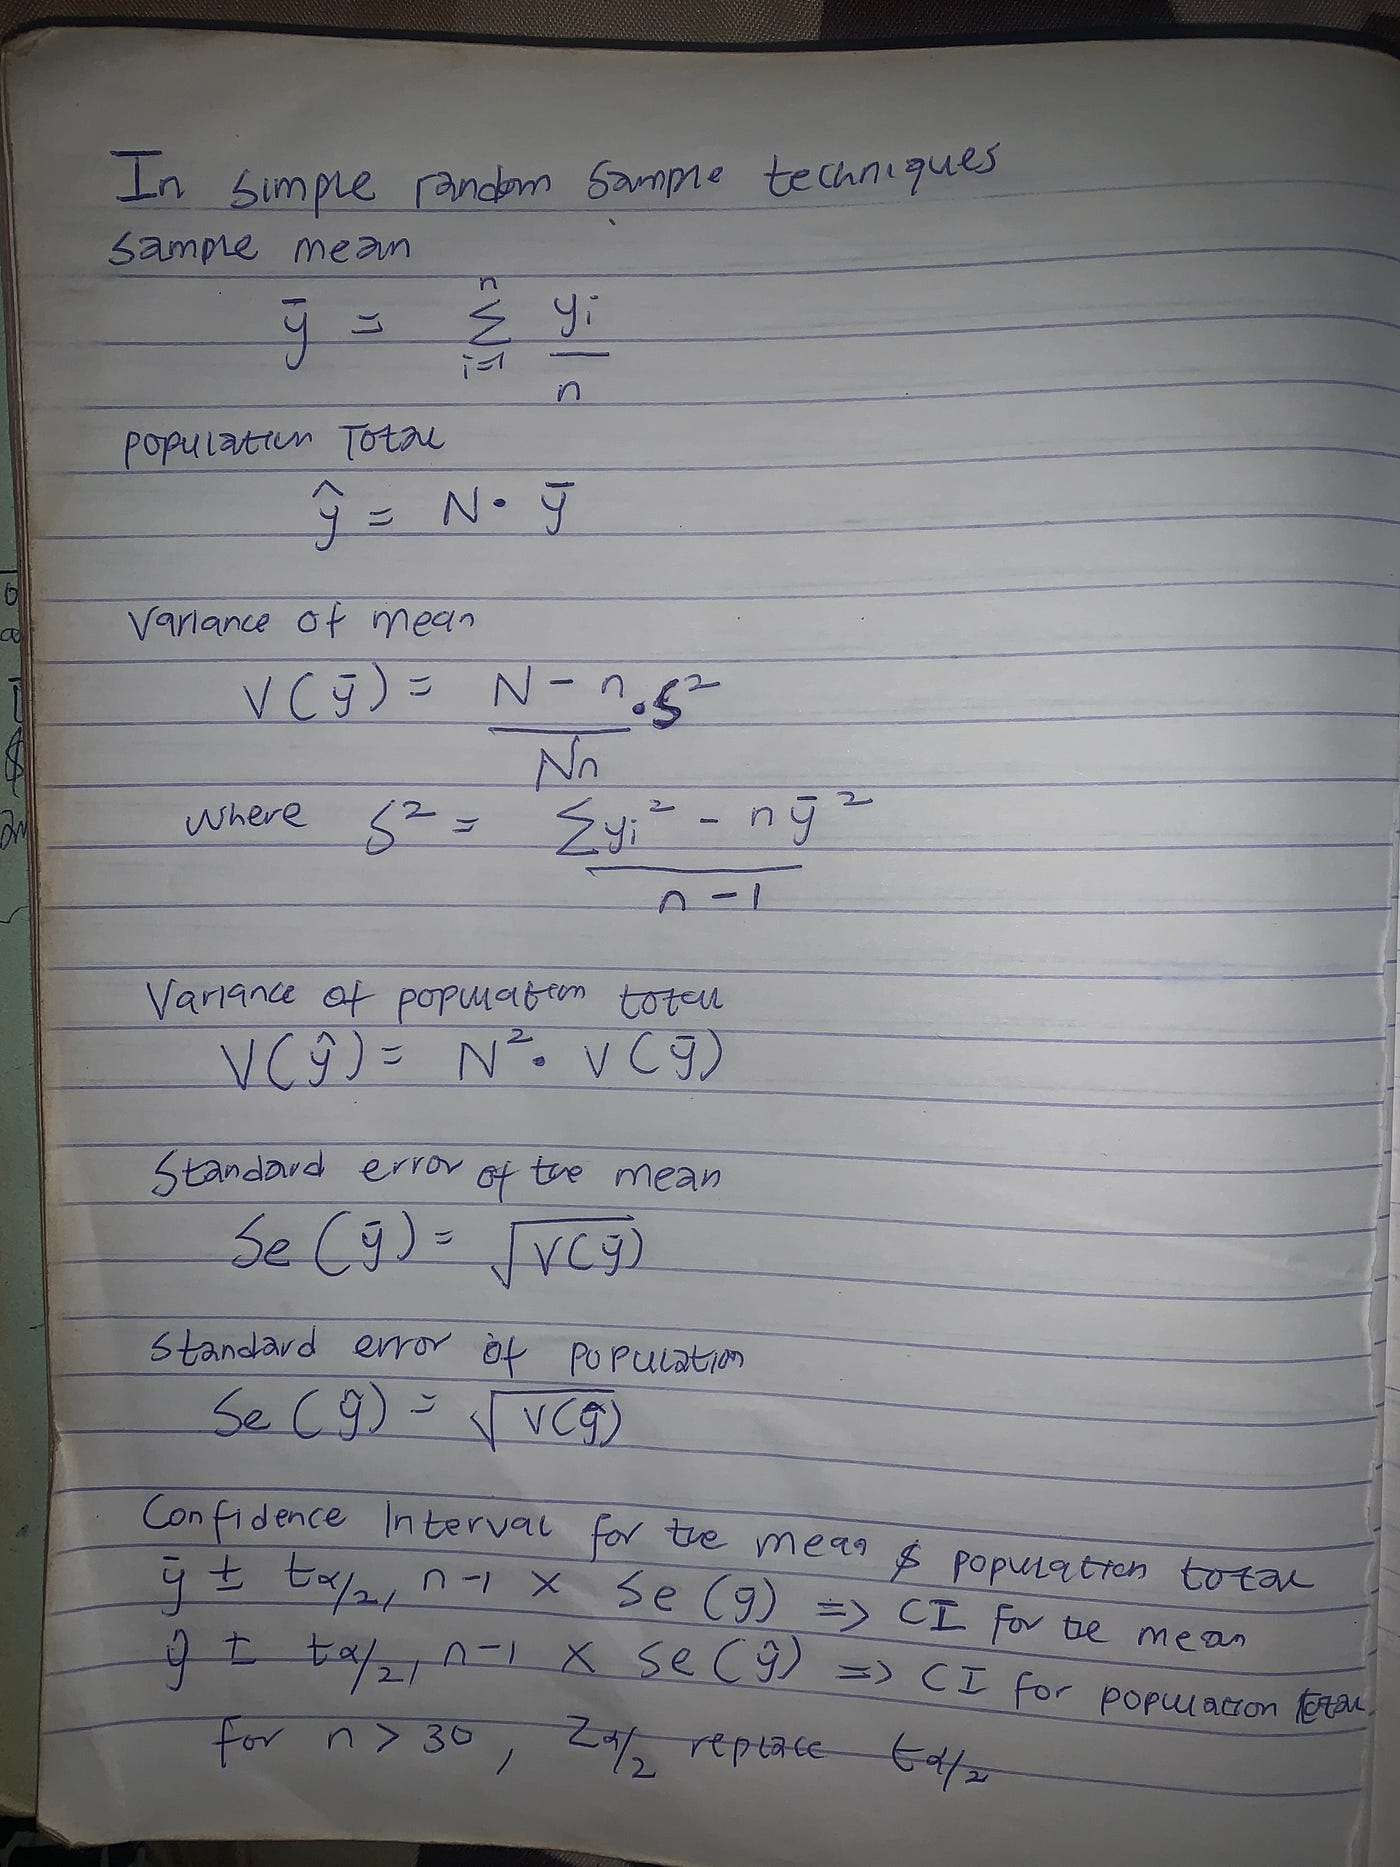 In simple random sample techniques
sample mean
ȳ = Σ_{i=1}^{n} yi/n
population Total
ŷ = N· ȳ
Variance of mean
V(ȳ) = (N-n)/(Nn) · S²
where S² = (Σyi² - nȳ²)/(n-1)
Variance of population total
V(ŷ) = N² · V(ȳ)
Standard error of the mean
Se (ȳ) = √V(ȳ)
Standard error of population
Se (ŷ) = √V(ŷ)
Confidence Interval for the mean & population total
ȳ ± tα/2, n-1 × Se (ȳ) => CI for the mean
ŷ ± tα/2, n-1 × Se (ŷ) => CI for population total
for n > 30, Zα/2 replace tα/2